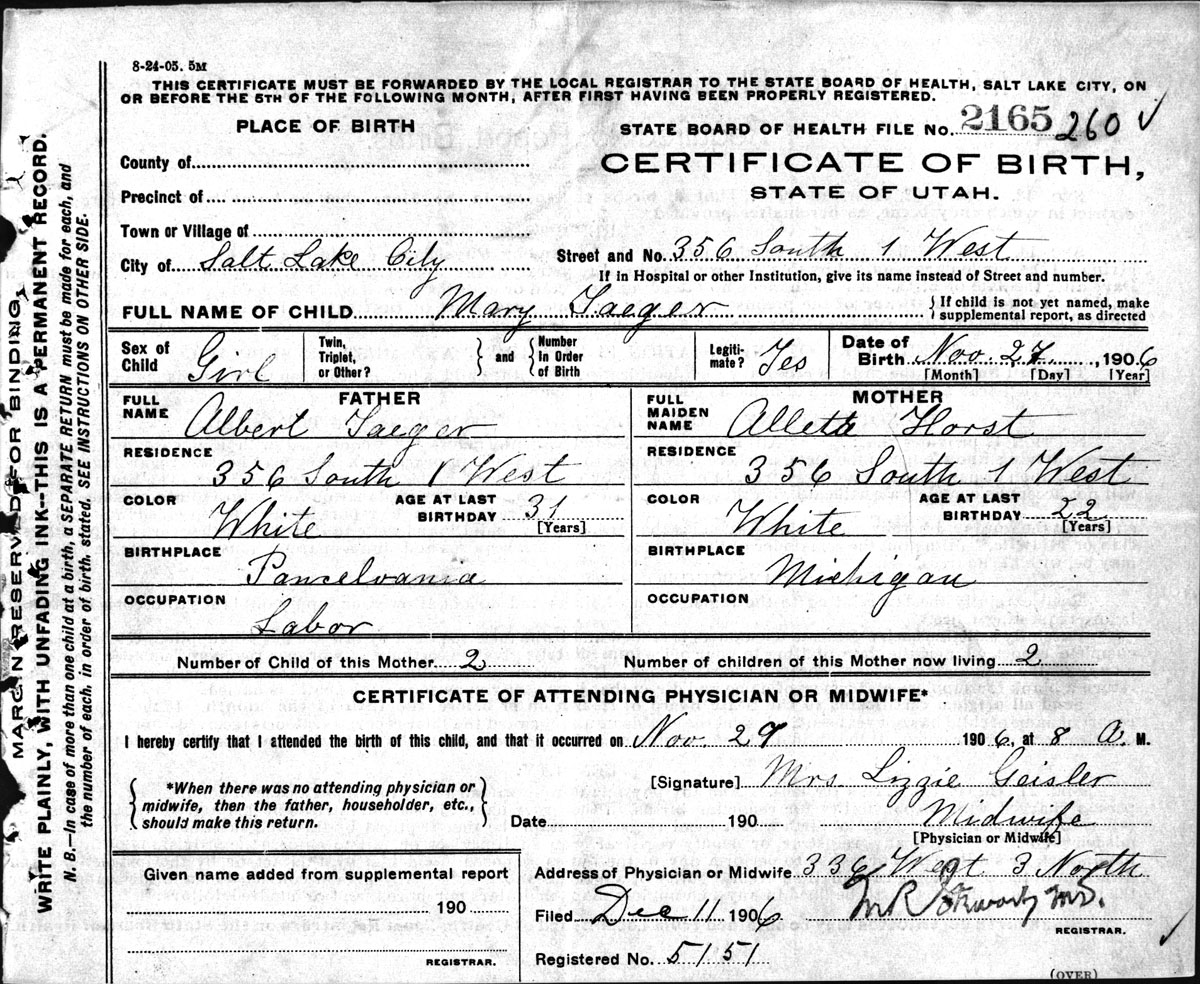 8-24-05. 5M
THIS CERTIFICATE MUST BE FORWARDED BY THE LOCAL REGISTRAR TO THE STATE BOARD OF HEALTH, SALT LAKE CITY, ON
OR BEFORE THE 5TH OF THE FOLLOWING MONTH, AFTER FIRST HAVING BEEN PROPERLY REGISTERED.
PLACE OF BIRTH
STATE BOARD OF HEALTH FILE No. 2165 260 ✓
County of
CERTIFICATE OF BIRTH,
Precinct of
STATE OF UTAH.
Town or Village of
City of Salt Lake City
Street and No. 356 South 1 West
If in Hospital or other Institution, give its name instead of Street and number.
FULL NAME OF CHILD Mary Jaeger
If child is not yet named, make
supplemental report, as directed
Sex of
Child Girl
Twin,
Triplet,
or Other?
and
Number
In Order
of Birth
Legiti-
mate? Yes
Date of
Birth Nov 27, 1906
[Month] [Day] [Year]
FATHER
FULL
NAME Albert Jaeger
RESIDENCE
356 South 1 West
COLOR White
AGE AT LAST
BIRTHDAY 31
[Years]
BIRTHPLACE
Pancelvania
OCCUPATION
Labor
MOTHER
FULL
MAIDEN
NAME Alleta Horst
RESIDENCE
356 South 1 West
COLOR White
AGE AT LAST
BIRTHDAY 22
[Years]
BIRTHPLACE
Michigan
OCCUPATION
Number of Child of this Mother 2
Number of children of this Mother now living 2
CERTIFICATE OF ATTENDING PHYSICIAN OR MIDWIFE*
I hereby certify that I attended the birth of this child, and that it occurred on Nov. 27 1906, at 8 A. M.
*When there was no attending physician or
midwife, then the father, householder, etc.,
should make this return.
[Signature] Mrs Lizzie Geisler
Date 190
Midwife
[Physician or Midwife]
Given name added from supplemental report
190
REGISTRAR.
Address of Physician or Midwife 336 West 3 North
Filed Dec 11 1906
M.D.
REGISTRAR.
Registered No. 5151
(OVER)
MARGIN RESERVED FOR BINDING.
WRITE PLAINLY, WITH UNFADING INK--THIS IS A PERMANENT RECORD.
N. B.—In case of more than one child at a birth, a SEPARATE RETURN must be made for each, and
the number of each, in order of birth, stated. SEE INSTRUCTIONS ON OTHER SIDE.